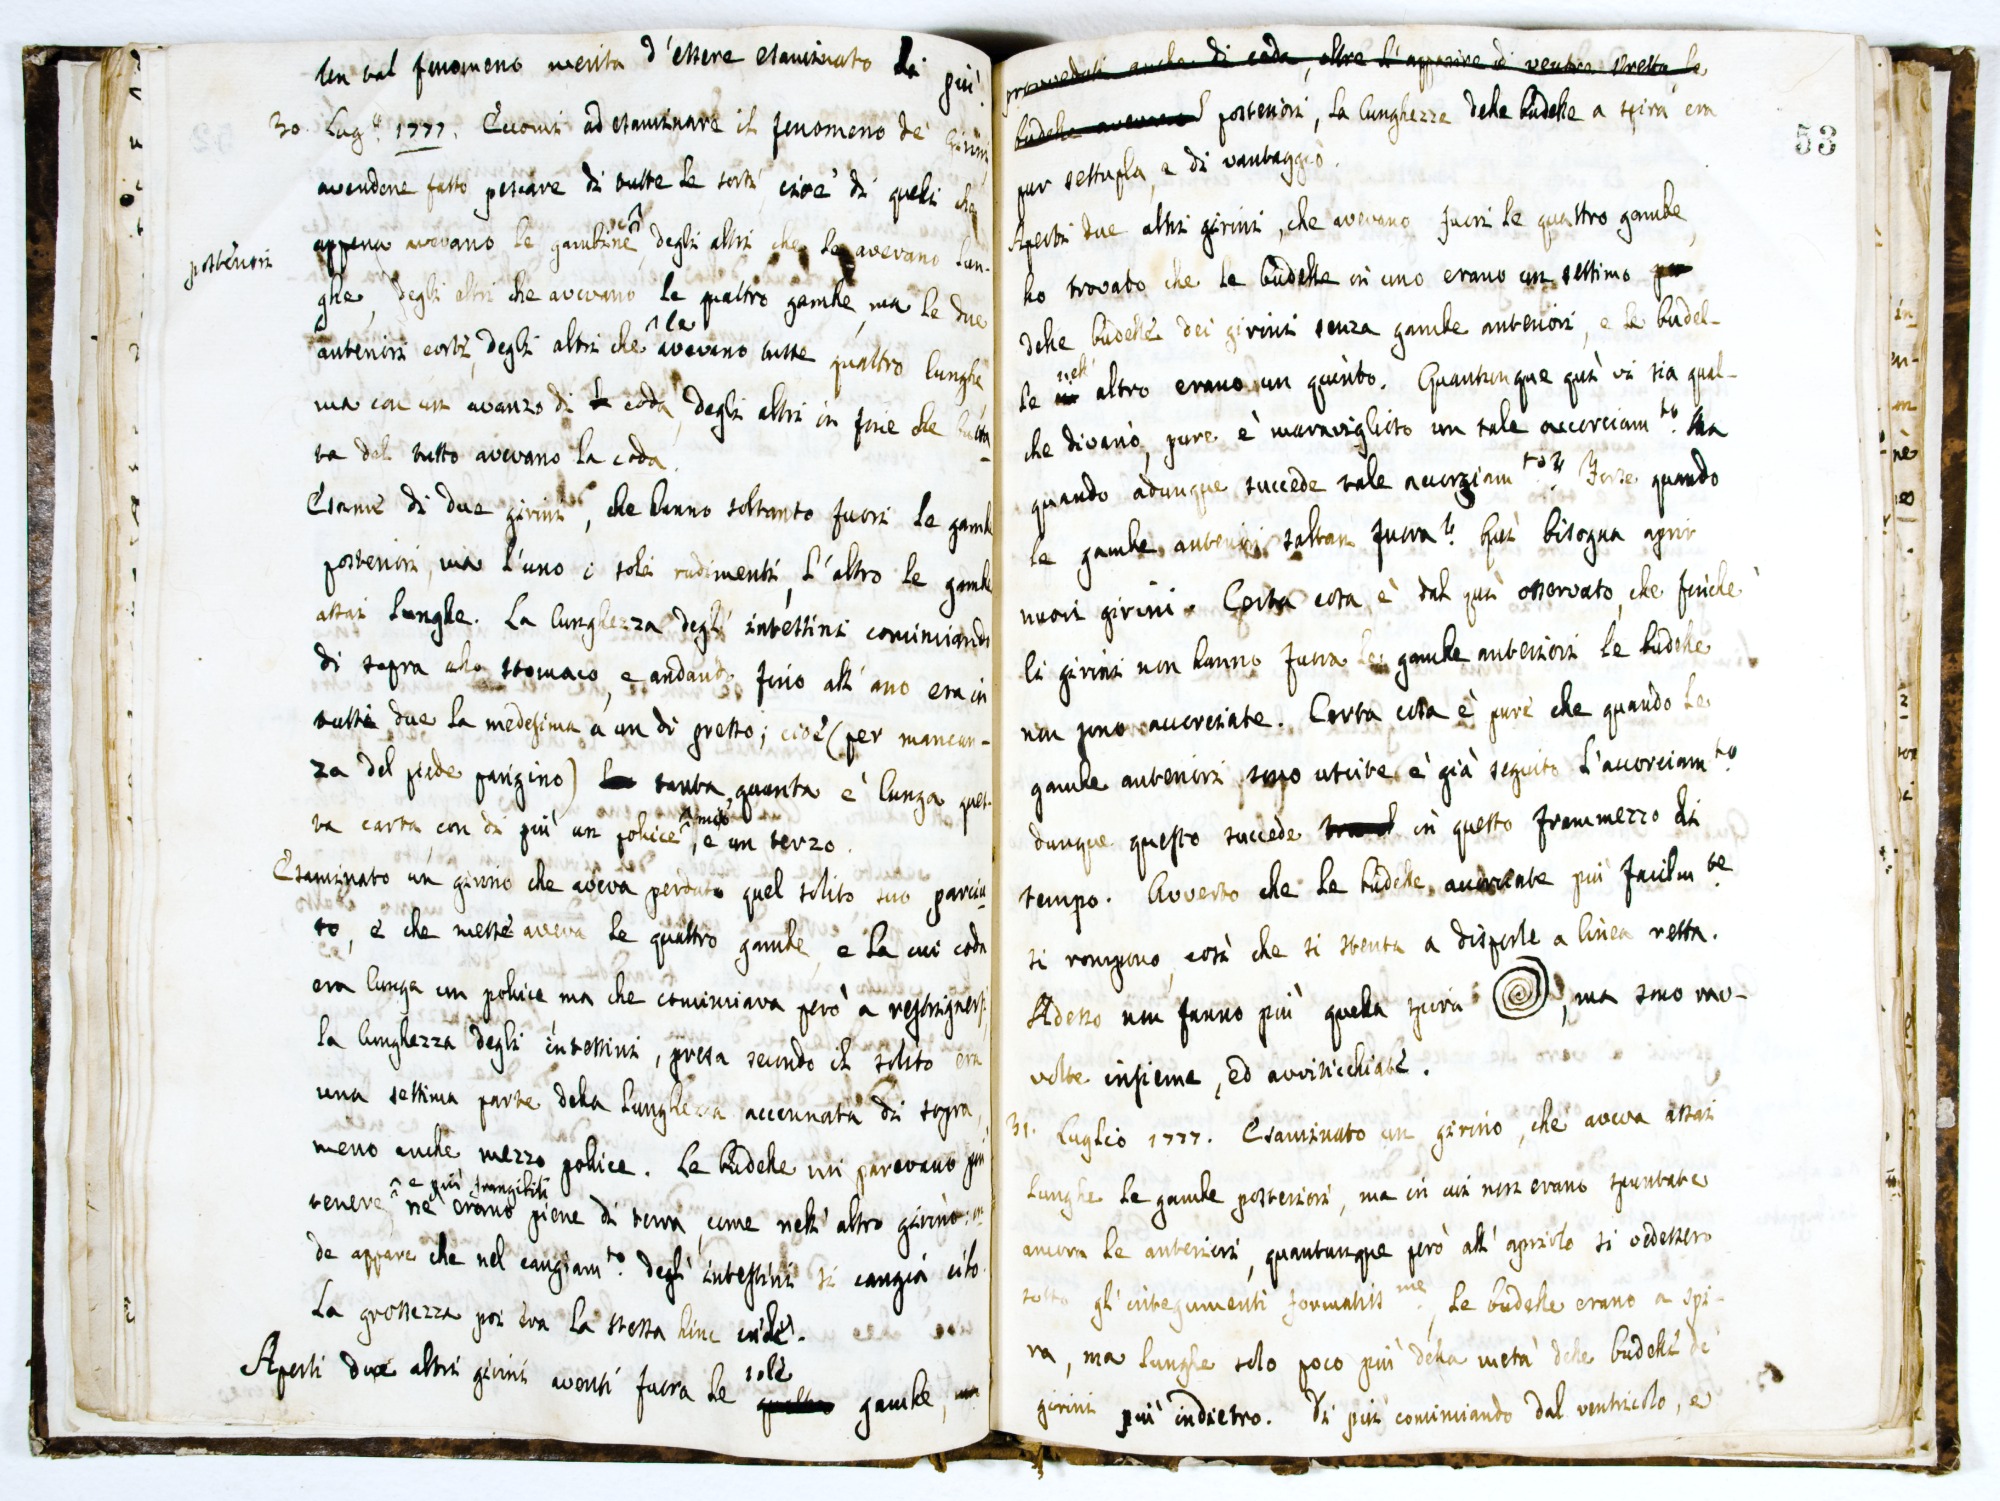 Un tal fenomeno merita d'essere esaminato di più.
30. Lug.º 1777. Eccomi ad esaminare il fenomeno de' girini
avendone fatto pescare di tutte le sorti, cioè di quelli che
appena avevano le gambine posteriori, degli altri che le avevano lun-
ghe, degli altri che avevano le quattro gambe, ma le due
anteriori corte, degli altri che le avevano tutte quattro lunghe
ma con un avanzo di coda, degli altri in fine che
ta del tutto avevano la coda.
Esame di due girini, che hanno soltanto fuori le gambe
posteriori, ma l'uno i soli rudimenti, l'altro le gambe
assai lunghe. La lunghezza degl' intestini cominciando
di sopra allo stomaco, e andando fino all' ano era in
tutti due la medesima a un di presso; cioè (per mancan-
za del piede parigino) tanta, quanta è lunga ques-
ta carta con di più un pollice, e un terzo.
Esaminato un girino che aveva perduto quel solito suo
to, e che messe aveva le quattro gambe, e la cui coda
era lunga un pollice, ma che cominciava però a restrignersi,
la lunghezza degli intestini, presa secondo il solito era
una settima parte della lunghezza accennata di sopra,
meno anche mezzo pollice. Le budelle mi parevano più
tenere, e più frangibili né erano piene di terra, come nell' altro girino: on
de appare che nel cangiam.to degl' intestini si cangia cibo.
La grossezza poi era la stessa hinc inde.
Aperti due altri girini aventi fuora le sole gambe,
provveduti anche di coda, oltre l'apparire il ventre
budelle avevano posteriori, la lunghezza delle budelle a spira era
pur settupla, e di vantaggio.
53
Aperti due altri girini, che avevano fuori le quattro gambe,
ho trovato che le budelle in uno erano un settimo
delle budelle dei girini senza gambe anteriori, e le budel-
le nell' altro erano un quinto. Quantunque quì vi sia qual-
che divario, pure è maraviglioso un tale accorciam.to. Ma
quando adunque succede tale accorziam.to? Forse quando
le gambe anteriori saltan fuora? Quì bisogna aprir
nuovi girini. Certa cosa è dal quì osservato, che finchè
li girini non hanno fuora le gambe anteriori le budelle
non sono accorciate. Certa cosa è pure che quando le
gambe anteriori sono uscite è già seguito l'accorciam.to
dunque questo succede in questo frammezzo di
tempo. Avverto che le budelle accorciate più facilm.te
si rompono, così che si stenta a disporle a linea retta.
Adesso non fanno più quella spira , ma sono rav-
volte insieme, ed avviticchiate.
31. Luglio 1777. Esaminato un girino, che aveva assai
lunghe le gambe posteriori, ma in cui non erano spuntate
ancora le anteriori, quantunque però all' aprirlo si vedessero
sotto gl' integumenti formatiss.me, le budelle erano a spi-
ra, ma lunghe solo poco più della metà delle budelle de'
girini più indietro. Di più cominciando dal ventricolo, e